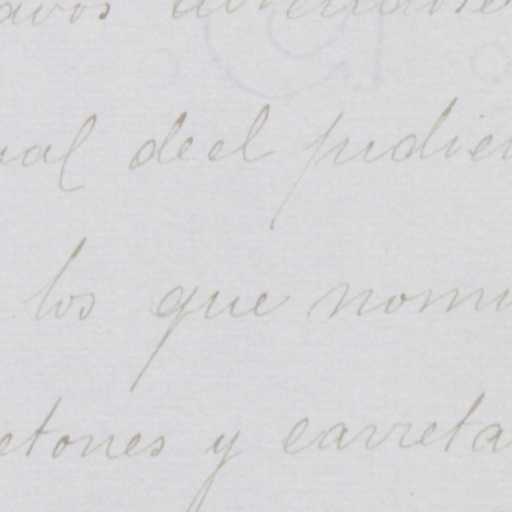 avos
ual deel pudien
los que nomi
etones y carreta